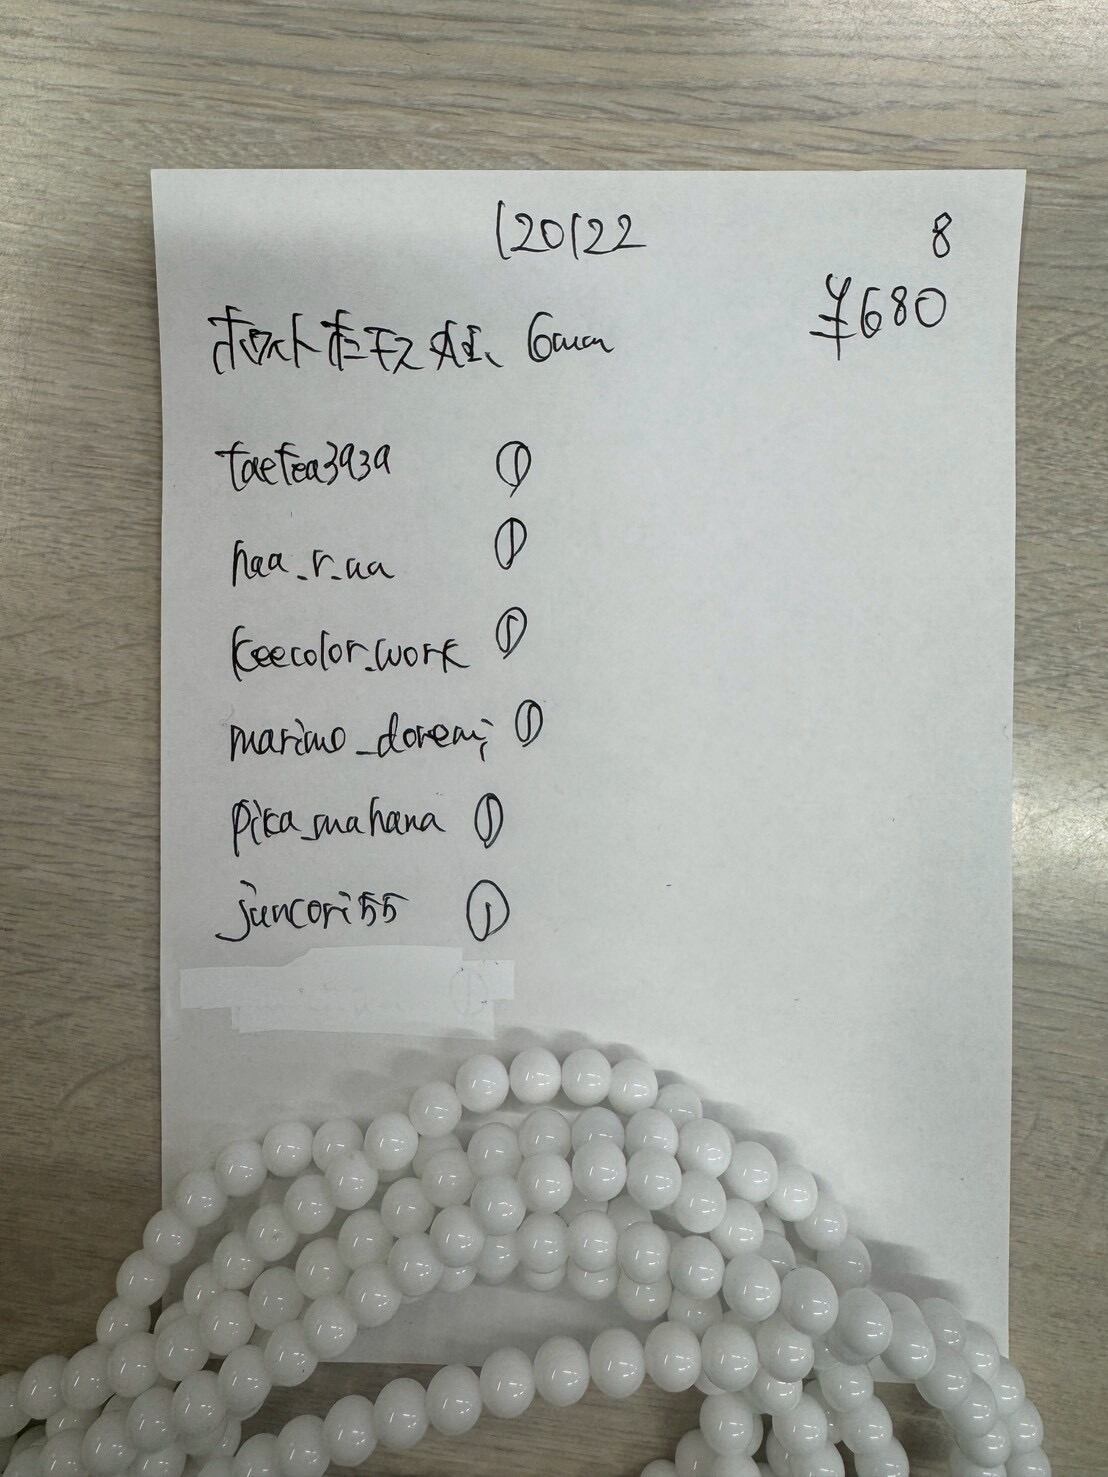 120122 8
¥680
ホワイトオニキス AA 6mm
taetea3939 ①
haa_r_aa ①
keecolor_work ①
marimo_doremi ①
pika_mahana ①
juncori55 ①